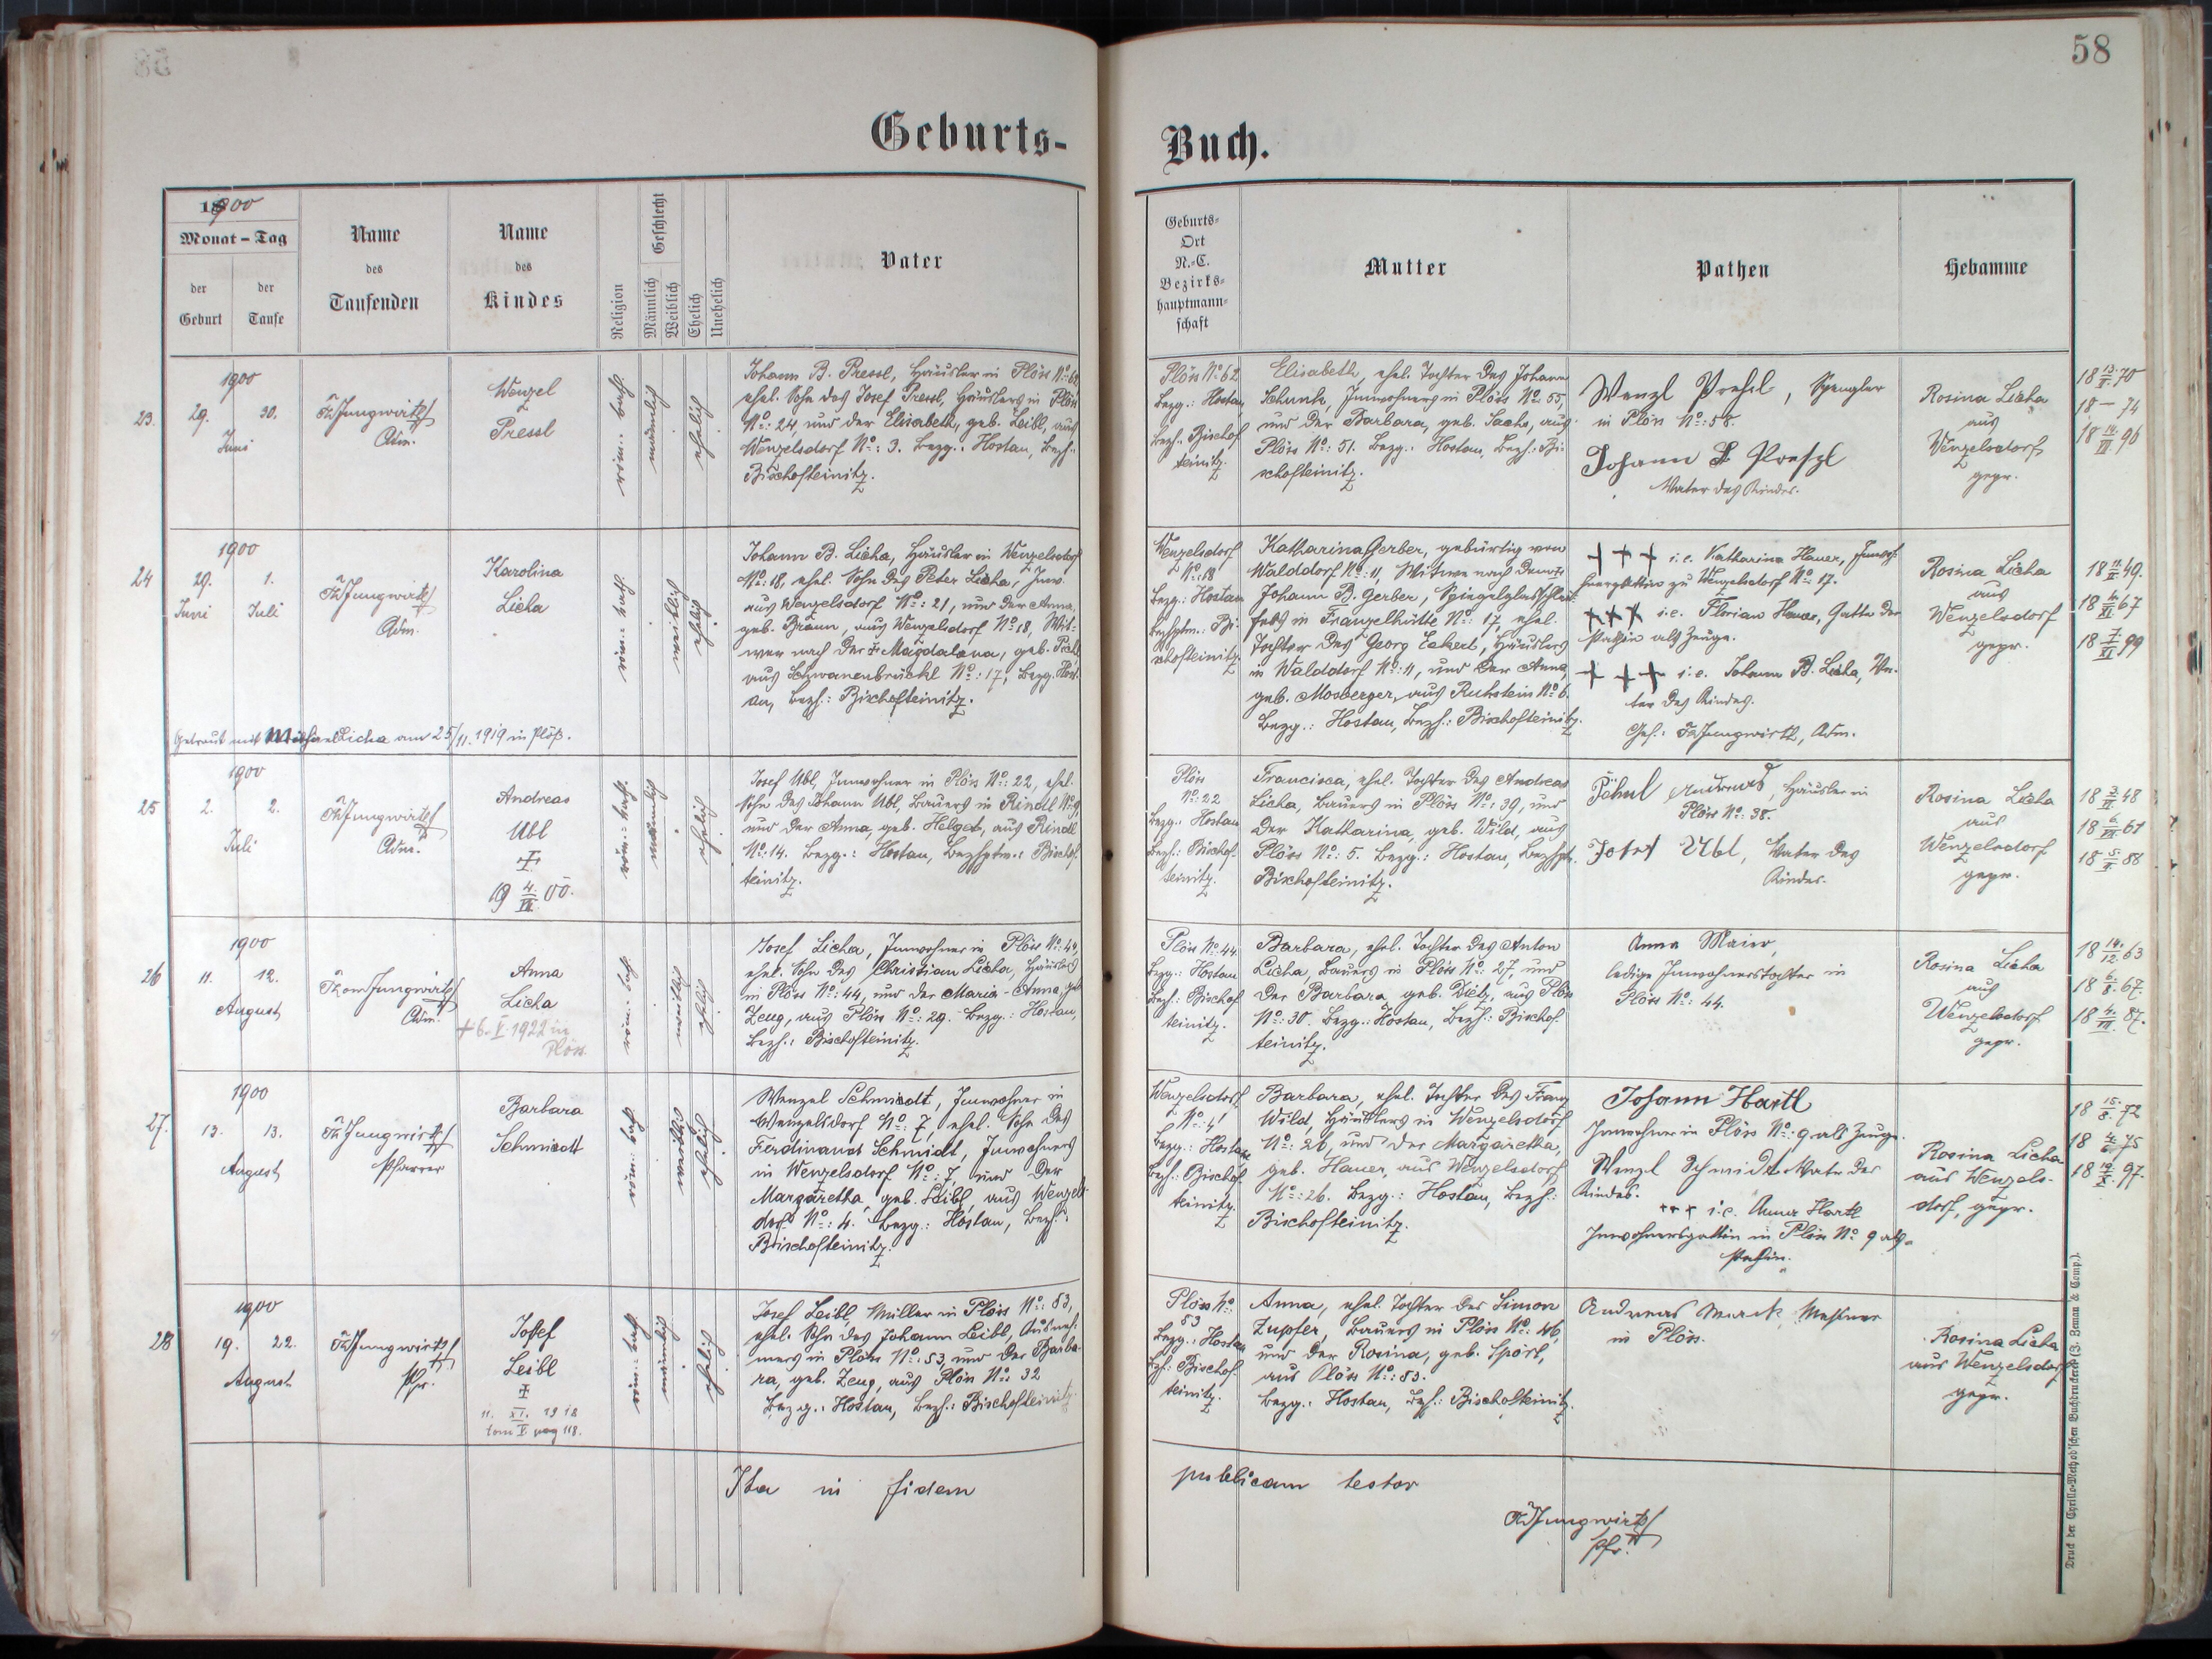 58
Geburts-
Buch.
1900
Monat – Tag
der Geburt
der Taufe
Name
des
Taufenden
Name
des
Kindes
Religion
Geschlecht
Männlich
Weiblich
Ehelich
Unehelich
Vater
Geburts-
Ort
N.-C.
Bezirks-
hauptmann-
schaft
Mutter
Pathen
Hebamme
23.
1900
29. 30.
Juni
Jungwirth
Adm.
Wenzel
Pressl
röm. kath.
männlich
ehelich
Johann B. Pressl, Häusler in Plöss No: 62,
ehel. Sohn des Josef Pressl, Häuslers in Plöss
No: 24, und der Elisabeth, geb. Leibl, aus
Wenzelsdorf No: 3. Bezg.: Hostau, Bezh.:
Bischofteinitz.
Plöss No 62
Bezg.: Hostau
Bezh. Bischof
teinitz.
Elisabeth, ehel. Tochter des Johann
Schunk, Inwohners in Plöss No. 55,
und der Barbara, geb. Sachs, aus
Plöss No: 51. Bezg.: Hostau, Bezh.: Bi-
schofteinitz.
Wenzl, Spengler
in Plöss No: 58.
Johann B. Preßl
Vater des Kindes.
Rosina Licha
aus
Wenzelsdorf
gepr.
18 13/I. 70
18 – 74
18 96
24
1900
29. 1.
Juni Juli
Jungwirth
Adm.
Karolina
Licha
röm. kath.
weiblich
ehelich
Johann B. Licha, Häusler in Wenzelsdorf
No: 18, ehel. Sohn des Peter Licha, Inw.
aus Wenzelsdorf No: 21, und der Anna,
geb. Braun, aus Wenzelsdorf No 18, Wit-
wer nach der † Magdalena, geb.
aus Schwanenbrückl No: 17, Bezg. Host-
au, Bezh.: Bischofteinitz.
Getraut mit Michael Licha am 25/11. 1919 in Plöß.
Wenzelsdorf
No: 18
Bezg.: Hostau
Bezhptm.: Bi-
schofteinitz.
Katharina Gerber, gebürtig von
Walddorf No: 11, Witwe nach dem †
Johann B. Gerber,
in Franzelhütte No: 17, ehel.
Tochter des Georg Eckert, Häuslers
in Walddorf No: 11, und der Anna,
geb. Mosberger, aus Ruhstein No 6.
Bezg.: Hostau, Bezh.: Bischofteinitz.
+++ i. e. Katharina Hauer,
zu Wenzelsdorf No: 17.
+++ i. e. Florian Hauer, Gatte der
Pathin als Zeuge.
+++ i. e. Johann B. Licha, Va-
ter des Kindes.
Jungwirth, Adm.
Rosina Licha
aus
Wenzelsdorf
gepr.
18 49.
18 67
18 7/XI 99
25
1900
2. 2.
Juli
Jungwirth
Adm.
Andreas
Ubl
†
19 4/VII. 00.
röm. kath.
männlich
ehelich
Josef Ubl, Inwohner in Plöss No: 22, ehel.
Sohn des Johann Ubl, Bauers in Rindl No: 9,
und der Anna, geb. Helget, aus Rindl
No: 14. Bezg.: Hostau, Bezhptm.: Bischof-
teinitz.
Plöss
No: 22
Bezg. Hostau
Bezh.: Bischof-
teinitz.
Francisca, ehel. Tochter des Andreas
Licha, Bauers in Plöss No: 39, und
der Katharina, geb. Wild, aus
Plöss No: 5. Bezg.: Hostau, Bezhpt.
Bischofteinitz.
Andreas, Häusler in
Plöss No: 38.
Josef Ubl, Vater des
Kindes.
Rosina Licha
aus
Wenzelsdorf
gepr.
18 48
18 61
18 88
26
1900
11. 12.
August
Jungwirth
Adm.
Anna
Licha
† 6. V. 1922 in
Plöss
röm. kath.
weiblich
ehelich
Josef Licha, Inwohner in Plöss No: 44,
ehel. Sohn des Christian Licha, Häuslers
in Plöss No: 44, und der Maria-Anna, geb.
Zeug, aus Plöss No: 29. Bezg.: Hostau,
Bezh.: Bischofteinitz.
Plöss No: 44.
Bezg.: Hostau
Bezh.: Bischof
teinitz.
Barbara, ehel. Tochter des Anton
Licha, Bauers in Plöss No: 27, und
der Barbara, geb. Dietz, aus Plöss
No: 30. Bezg.: Hostau, Bezh.: Bischof-
teinitz.
Anna Maier,
ledige Inwohnerstochter in
Plöss No: 44.
Rosina Licha
aus
Wenzelsdorf
gepr.
18 14/12. 63
18 6/8. 67.
18 87.
27.
1900
13. 13.
August
Jungwirth
Pfarrer
Barbara
Schmiedt
röm. kath.
weiblich
ehelich
Wenzel Schmiedt, Inwohner in
Wenzelsdorf No: 7, ehel. Sohn des
Ferdinand Schmidt, Inwohners
in Wenzelsdorf No: 7, und der
Margaretha, geb. Leibl, aus Wenzels-
dorf No: 4. Bezg.: Hostau, Bezh.:
Bischofteinitz.
Wenzelsdorf
No: 4
Bezg.: Hostau
Bezh.: Bischof-
teinitz.
Barbara, ehel. Tochter des Franz
Wild, Häuslers in Wenzelsdorf
No: 26, und der Margaretha,
geb. Hauer, aus Wenzelsdorf
No: 26. Bezg.: Hostau, Bezh.:
Bischofteinitz.
Johann Hartl
Inwohner in Plöss No: 9 als Zeuge.
Wenzl Schmidt Vater des
Kindes.
+++ i. e. Anna Hartl
Inwohnersgattin in Plöss No 9 als
Pathin.
Rosina Licha
aus Wenzels-
dorf, gepr.
18 15/8. 72
18 75
18 97.
28
1900
19. 22.
August
Jungwirth
Pfr.
Josef
Leibl
†
11. XI. 1918
tom V pag 118.
röm. kath.
männlich
ehelich
Josef Leibl, Müller in Plöss No: 53,
ehel. Sohn des Johann Leibl, Ausneh-
mers in Plöss No: 53, und der Barba-
ra, geb. Zeug, aus Plöss No: 32
Bezg.: Hostau, Bezh.: Bischofteinitz.
Plöss No:
53
Bezg.: Hostau
Bzh.: Bischof-
teinitz.
Anna, ehel. Tochter des Simon
Zupfer, Bauers in Plöss No: 46,
und der Rosina, geb. Spörl,
aus Plöss No: 53.
Bezg.: Hostau, Bezh.: Bischofteinitz.
Andreas Marck Meßner
in Plöss.
Rosina Licha
aus Wenzelsdorf
gepr.
Ita in fidem
publicam testor
Jungwirth
Pfr.
Druck der Cyrillo-Method'schen Buchdruckerei (J. Zeman & Comp.).